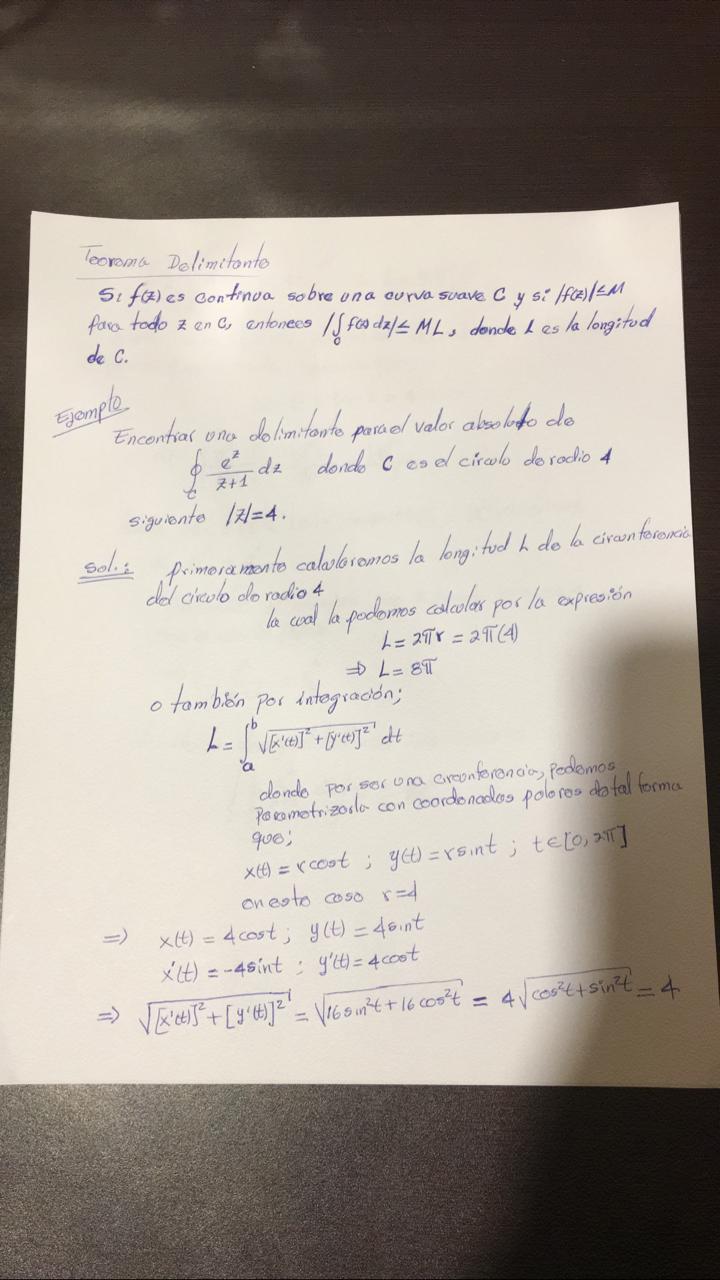 Teorema Delimitante
Si f(z) es continua sobre una curva suave C y si |f(z)|≤M
para todo z en C, entonces |∫_C f(z)dz|≤ ML, donde L es la longitud
de C.
Ejemplo
Encontrar una delimitante para el valor absoluto de
∮_C e^z/(z+1) dz donde C es el círculo de radio 4
siguiente |z|=4.
Sol.: Primeramente calcularemos la longitud L de la circunferencia
del círculo de radio 4
la cual la podemos calcular por la expresión
L = 2πr = 2π(4)
⇒ L = 8π
o también por integración;
L = ∫_a^b √([x'(t)]² + [y'(t)]²) dt
donde por ser una circunferencia, podemos
Parametrizarla con coordenadas polares de tal forma
que;
x(t) = rcost ; y(t) = rsint ; t∈[0, 2π]
en este caso r=4
⇒ x(t) = 4cost ; y(t) = 4sint
x'(t) = -4sint ; y'(t) = 4cost
⇒ √([x'(t)]² + [y'(t)]²) = √(16sin²t + 16cos²t) = 4√(cos²t + sin²t) = 4